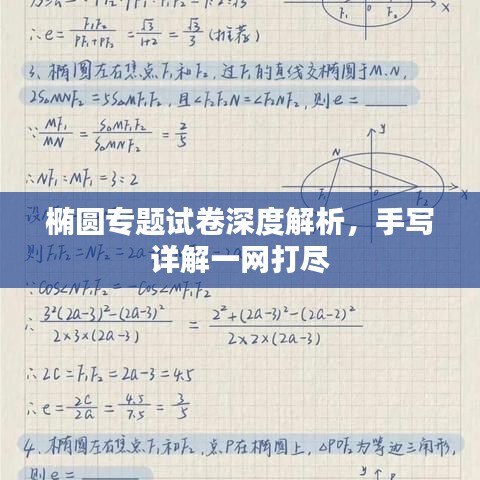 ∴e = F₁F₂/(PF₁+PF₂) = √3/(1+2) = √3/3 (推荐)
3、椭圆左右焦点F₁和F₂，过F₁的直线交椭圆于M.N,
2S△MNF₂=5S△MF₁F₂, 且∠F₂F₁N=∠F₂NF₁, 则e=____
∵ MF₁/MN = S△MF₁F₂/S△MNF₂ = 2/5
∴NF₁:MF₁=3:2
椭圆专题试卷深度解析，手写
详解一网打尽
则F₁F₂=NF₂=2a-
∵cos∠NF₁F₂=-cos∠MF₁F₂
∴ (3²(2a-3)²-(2a-3)²)/(2×3×(2a-3)) = (2²+(2a-3)²-(2a-2)²)/(2×2×(2a-3))
∴2C=F₁F₂=2a-3=4.5
∴e=2C/2a=4.5/7.5=3/5
4、椭圆左右焦点F₁和F₂，点P在椭圆上，△POF₂为等边三角形，
则e=____